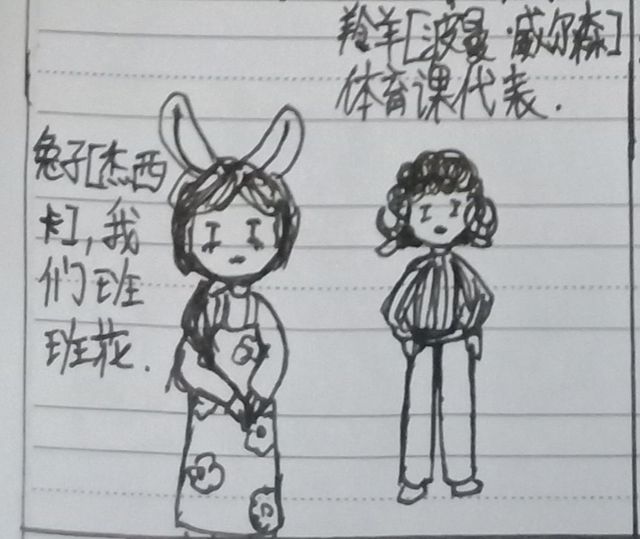 羚羊[波曼·威尔森]
体育课代表.
兔子[杰西
卡],我
们班
班花.